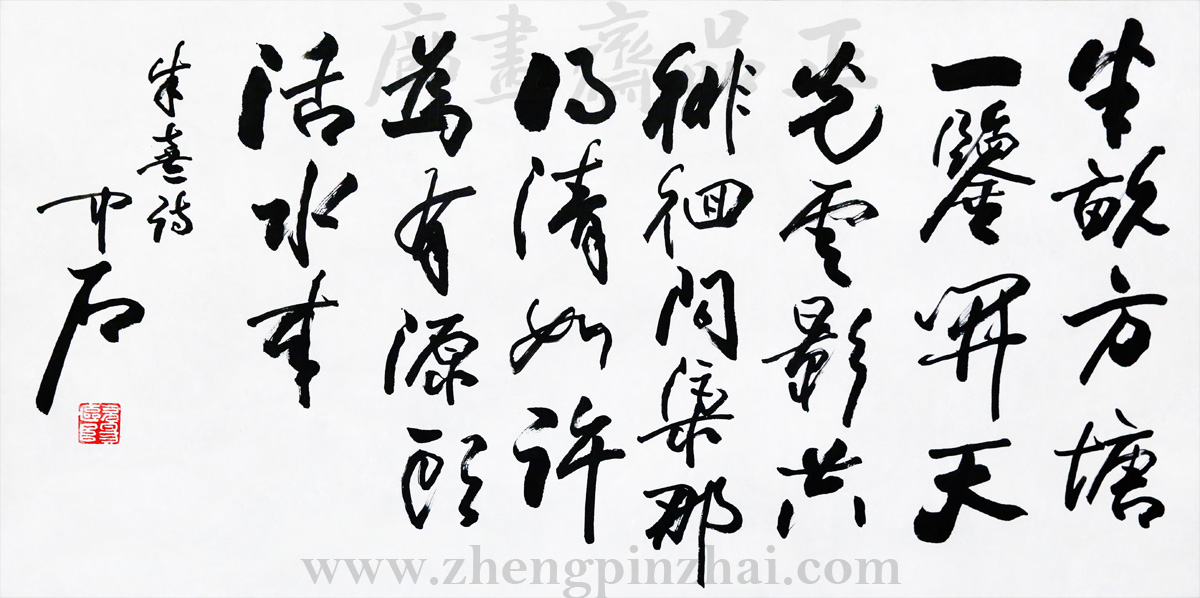 正品齋畫廊
半畝方塘
一鑒開天
光雲影共
徘徊問渠那
得清如許
為有源頭
活水來
朱熹詩
中石
www.zhengpinzhai.com